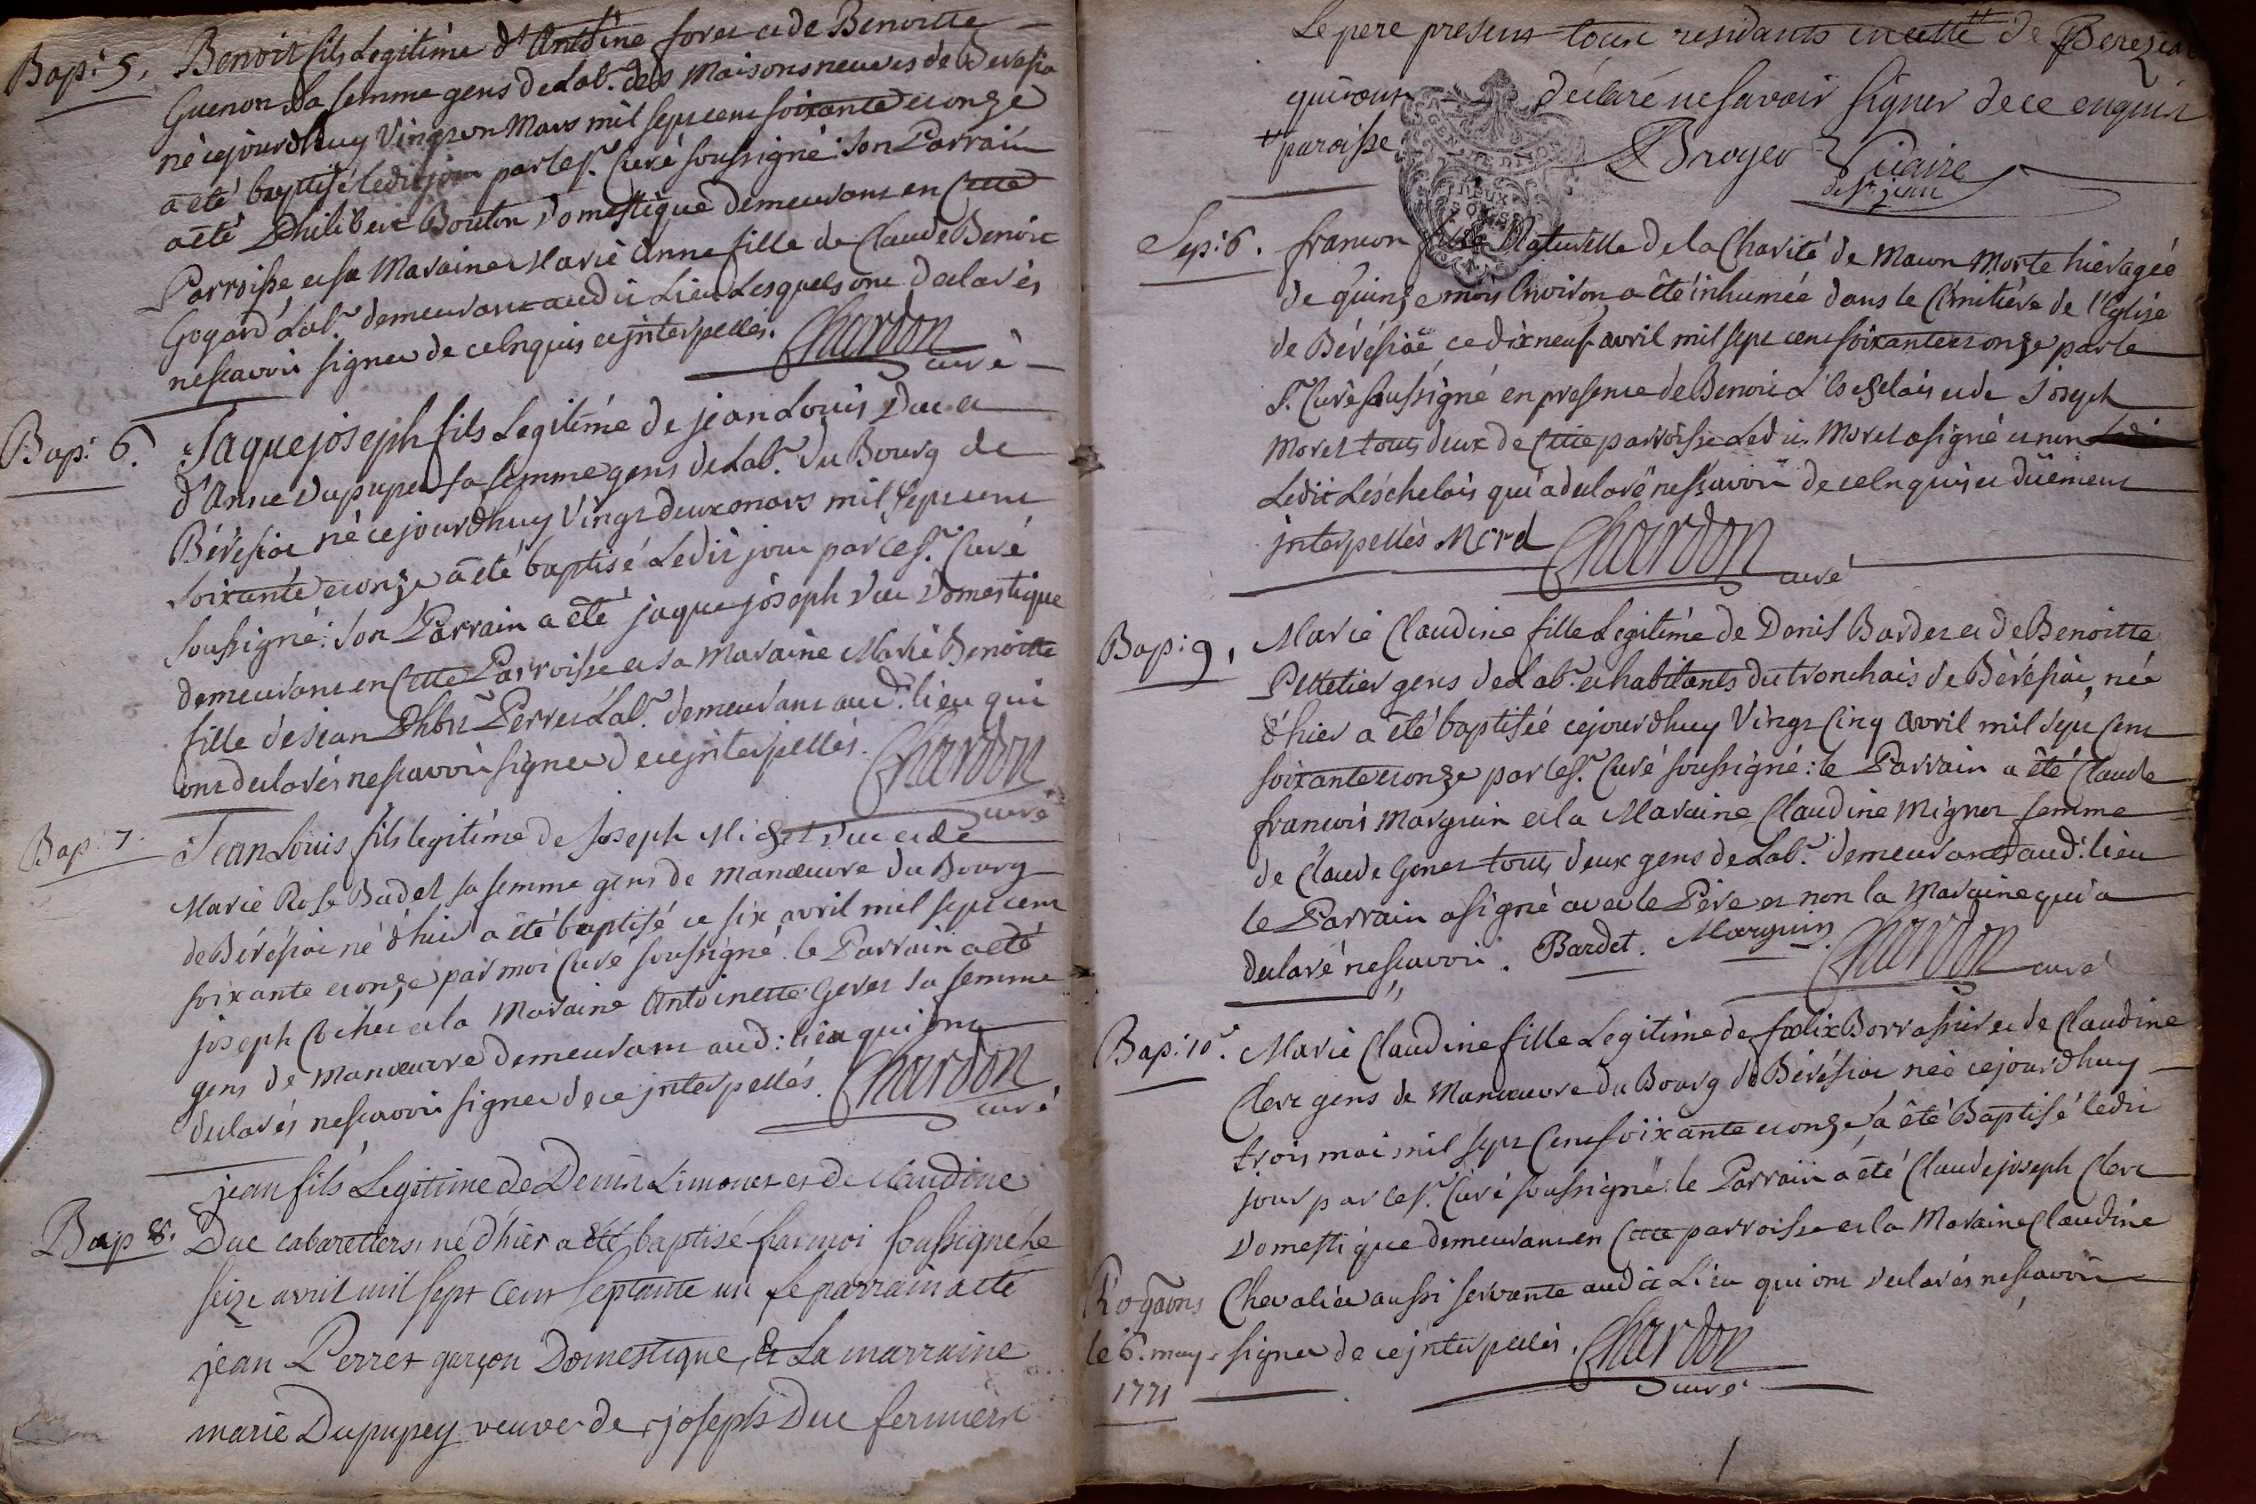 Bap: 5. Benoit fils Legitime d'Antoine forer et de Benoitte
Guenon sa femme gens de Lab.r des Maisons neuves de Berésia
né cejourdhuy Vingt un Mars mil sept cent soixante et onze
a été baptisé ledit jour par le Sr. Curé soussigné: son Parrain
a été Philibert Bouton Domestique demeurant en Cette
Parroisse et sa Maraine Marie Anne fille de Claude Benoit
Gogard Lab.r demeurant audit Lieu Lesquels ont declarés
ne scavoir signer de ce Enquis et jnterpellés. Chardon
curé
Bap: 6. Jaque joseph fils Legitime de jean Louis Duc et
d'Anne Dupupet sa femme gens de Lab.r du Bourg de
Bérésiat né cejourdhuy Vingt deux mars mil sept cent
soixante et onze a été baptisé Ledit jour par le Sr. Curé
soussigné: son Parrain a été jaque joseph Duc Domestique
demeurant en Cette Parroisse et sa Maraine Marie Benoitte
fille de jean Phbrt Perret Lab.r demeurant aud: lieu qui
ont declarés ne scavoir signer de ce jnterpellés. Chardon
curé
Bap: 7. Jean Louis fils legitime de Joseph Michel Duc et de
Marie Rose Badet sa femme gens de manœuvre du Bourg
de Bérésiat né d'hier a été baptisé ce six avril mil sept cent
soixante et onze par moi Curé soussigné. le Parrain a été
joseph Cochet et la Maraine Antoinette Geret sa femme
gens de manœuvre demeurant aud: lieu qui ont
declarés ne scavoir signer de ce jnterpellés. Chardon
curé
jean fils Legitime de Denis Limonet et de Claudine
Bap 8. Duc cabaretiers, né d'hier a été baptisé par moi soussigné le
seize avril mil sept cent septante un le parrain a été
jean Perret garçon Domestique, & La marraine
marie Dupupey veuve de joseph Duc fermiers
Le pere present tous residants en cette ++ de Bereziat
qui ont déclaré ne savoir signer de ce enquis
++ paroisse Broyer Vicaire
de St. jean
Sep: 6. francon fille Naturelle de la Charité de Macon Morte hier agée
de quinze mois Environ, a été inhumée dans le Cimitière de l'Eglise
de Bérésiat ce dix neuf avril mil sept cent soixante et onze par le
Sr. Curé soussigné en presence de Benoit L'Eschelais et de Joseph
Morel tous deux de Cette parroisse Ledit Morel a signé et non
Ledit Léschelais qui a declaré ne scavoir de ce Enquis et dûement
jnterpellés Morel Chardon
curé
Bap: 9. Marie Claudine fille Legitime de Denis Bardet et de Benoitte
Pelletier gens de Lab.r et habitants du tronchais de Bérésiat, née
d'hier a été baptisée cejourdhuy Vingt Cinq avril mil sept Cent
soixante et onze par le Sr. Curé soussigné: le Parrain a été Claude
francois Marguin et la Maraine Claudine Mignot femme
de Claude Gonet tous deux gens de Lab.r demeurants aud: lieu
le Parrain a signé avec le Pére et non la Maraine qui a
declaré ne scavoir. Bardet. Marguin Chardon
curé
Bap: 10e. Marie Claudine fille Legitime de fœlix Borrassier et de Claudine
Clerc gens de Manœuvre du Bourg de Bérésiat née cejourdhuy
trois mai mil sept Cent soixante et onze a été Baptisé ledit
jour par le Sr. Curé soussigné: le Parrain a été Claude joseph Clerc
Domestique demeurant en Cette parroisse et la Maraine Claudine
Rogaons Chevalier aussi servante audit Lieu qui ont declarés ne scavoir
le 6. may signer de ce jnterpellés. Chardon
1771 curé